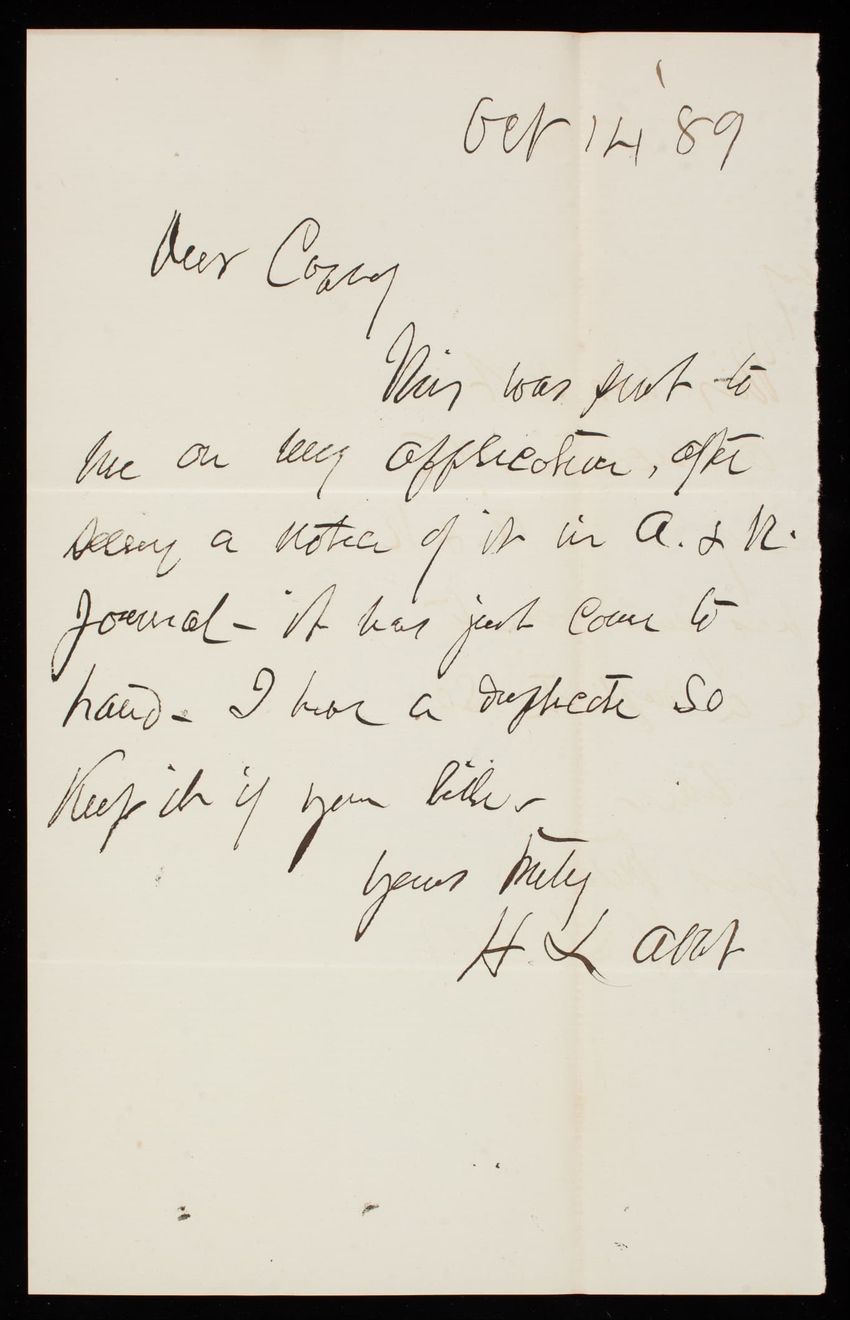 Oct 14 '89
Dear Casey
This was sent to
me on my application, after
seeing a notice of it in A. & N.
Journal - it has just come to
hand - I have a duplicate so
keep it if you like -
Yours truly
H L Abbot